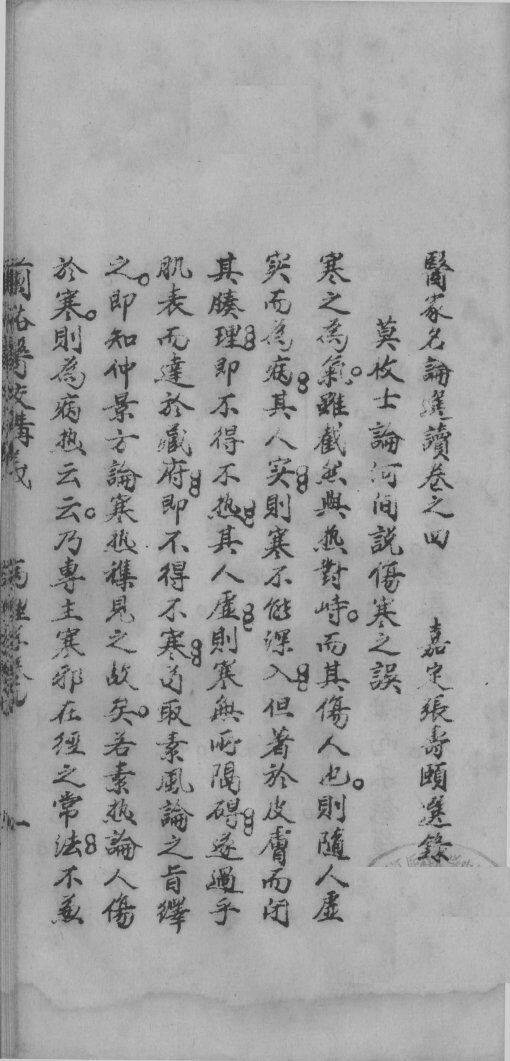 醫家名論選讀卷之四　嘉定張壽頤選錄
莫枚士論河間說傷寒之誤
寒之為氣。雖截然與熱對峙。而其傷人也。則隨人虛
实而為病。其人实則寒不能深入。但著於皮膚而闭
其腠理。即不得不热。其人虛則寒無所隔碍。遂過乎
肌表而達於藏府。即不得不寒。苟取素風論之旨繹
之。即知仲景方論寒热襍見之故矣。若素热論人傷
於寒。則為病热云云。乃專主寒邪在經之常法。不兼
蘭谿醫校講義　一